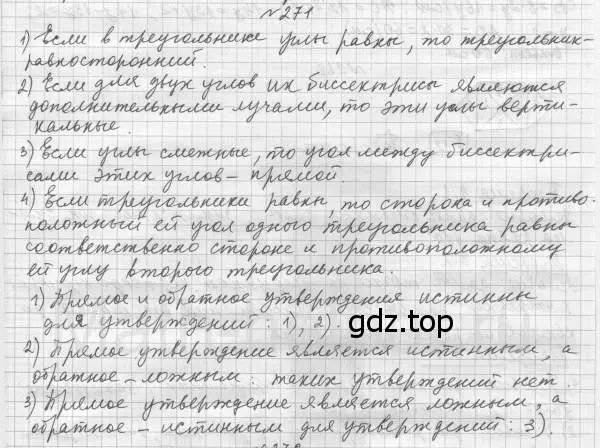 №271
1) Если в треугольнике углы равны, то треугольник-
равносторонний.
2) Если для двух углов их биссектрисы являются
дополнительными лучами, то эти углы верти-
кальные.
3) Если углы смежные, то угол между биссектри-
сами этих углов – прямой.
4) Если треугольники равны, то сторона и противо-
положный ей угол одного треугольника равны
соответственно стороне и противоположному
ей углу второго треугольника.
1) Прямое и обратное утверждения истинны
для утверждений: 1), 2).
gdz.top
2) Прямое утверждение является истинным, а
обратное – ложным: таких утверждений нет.
3) Прямое утверждение является ложным, а
обратное – истинным для утверждений: 3).